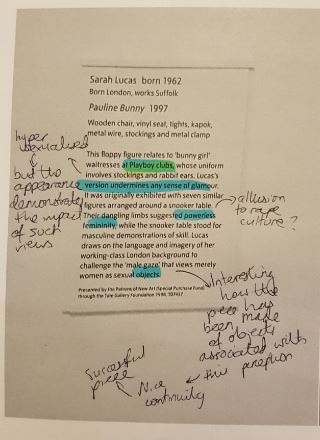 Sarah Lucas born 1962
Born London, works Suffolk
Pauline Bunny 1997
Wooden chair, vinyl seat, tights, kapok,
metal wire, stockings and metal clamp
This floppy figure relates to 'bunny girl'
waitresses at Playboy clubs, whose uniform
involves stockings and rabbit ears. Lucas's
version undermines any sense of glamour.
It was originally exhibited with seven similar
figures arranged around a snooker table.
Their dangling limbs suggested powerless
femininity, while the snooker table stood for
masculine demonstrations of skill. Lucas
draws on the language and imagery of her
working-class London background to
challenge the 'male gaze' that views merely
women as sexual objects.
Presented by the Patrons of New Art (Special Purchase Fund)
through the Tate Gallery Foundation 1998, T07437
hyper
sexualised
but the
appearance
demonstrates
the impact
of such
views
allusion
to rape
culture?
Interesting
how the
piece has
been made
of objects
associated with
this perception
Nice
continuity
Successful
piece